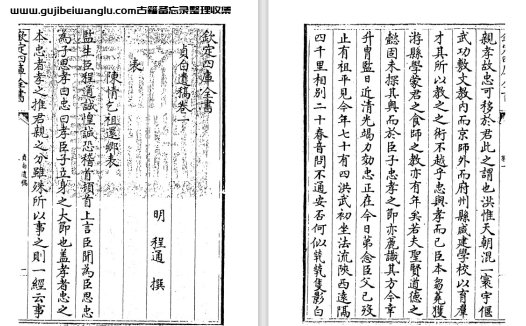 www.gujibeiwanglu.com古籍备忘录整理收集
欽定四庫全書
貞白遺稿卷一
明 程通 撰
表
陳情乞祖還鄉表
監生臣程通誠惶誠恐稽首頓首上言臣聞為臣思忠
為子思孝曰忠曰孝臣子立身之大節也蓋孝者忠之
本忠者孝之推君親之分雖殊所以事之則一經云事
欽定四庫全書
貞白遺稿
親孝故忠可移於君此之謂也洪惟天朝混一寰宇偃
武功敷文教內而京師外而府州縣咸建學校以育羣
才其所以教之之術不越乎忠與孝而已臣本芻蕘獲
游縣學蒙君之食師之教亦有年矣若夫聖賢道德之
懿固未探其奧而於臣子忠孝之節亦麄識其方今幸
升胄監日近清光竭力効忠正在今日第念臣父已歿
止有祖平見今年七十有四洪武初坐法流陝西遠隔
四千里相別二十春音問不通安否何似煢煢隻影白